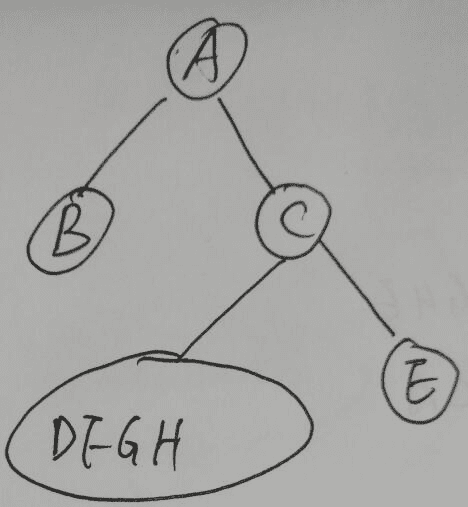 A
B
C
DFGH
E